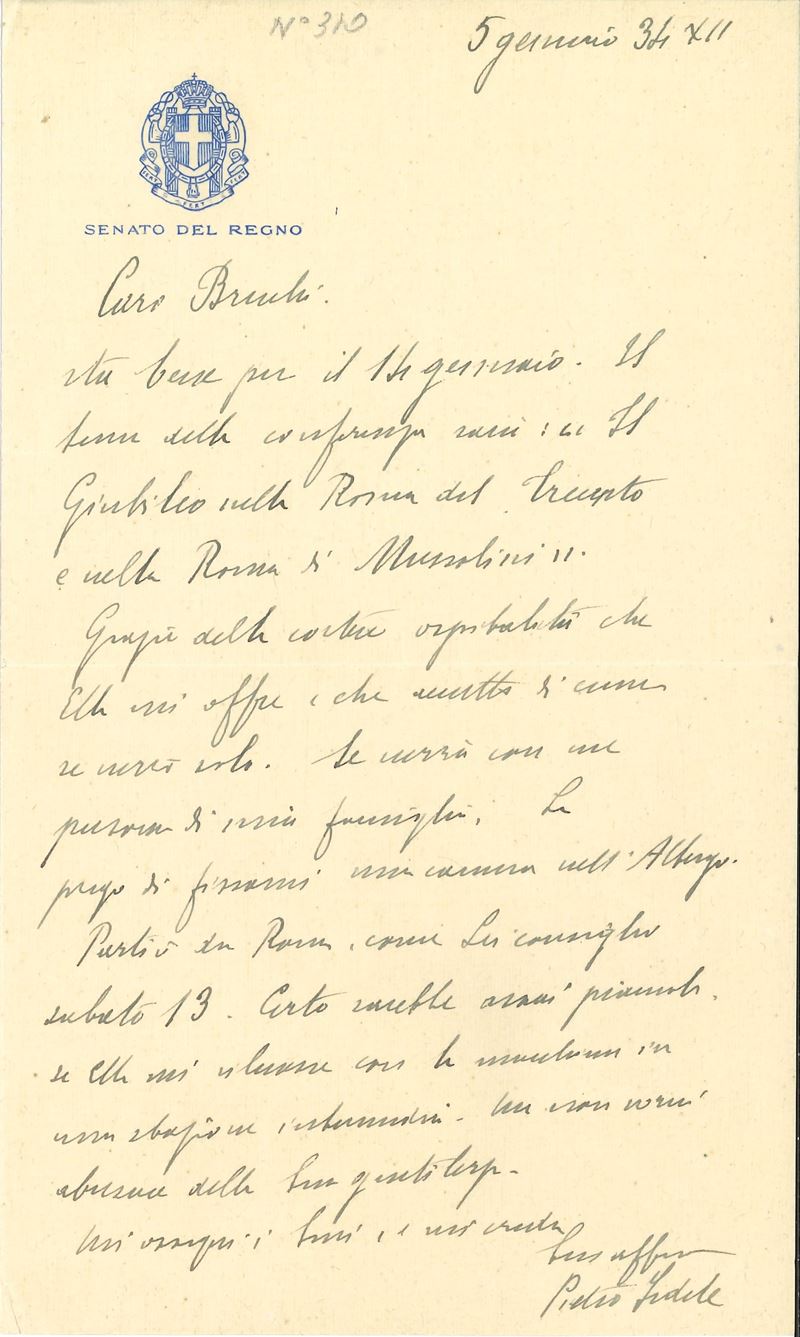 N° 310
5 gennaio 34 XII
FERT FERT FERT
SENATO DEL REGNO
Caro
sta bene per il 14 gennaio. Il
tema della conferenza sarà: « Il
Giubileo nella Roma del Trecento
e nella Roma di Mussolini ».
Grazie della cortese ospitalità che
Ella mi offre e che accetto di cuore
se verrò solo. Se verrà con me
persona di mia famiglia, La
prego di fissarmi una camera nell'Albergo.
Partirò da Roma, come Lei consiglia
sabato 13. Certo sarebbe assai piacevole,
se Ella mi rilevasse con la macchina in
una stazione intermedia. Ma non vorrei
abusare della Sua gentilezza.
Mi ossequi i Suoi, e mi creda
Suo affmo
Pietro Fedele